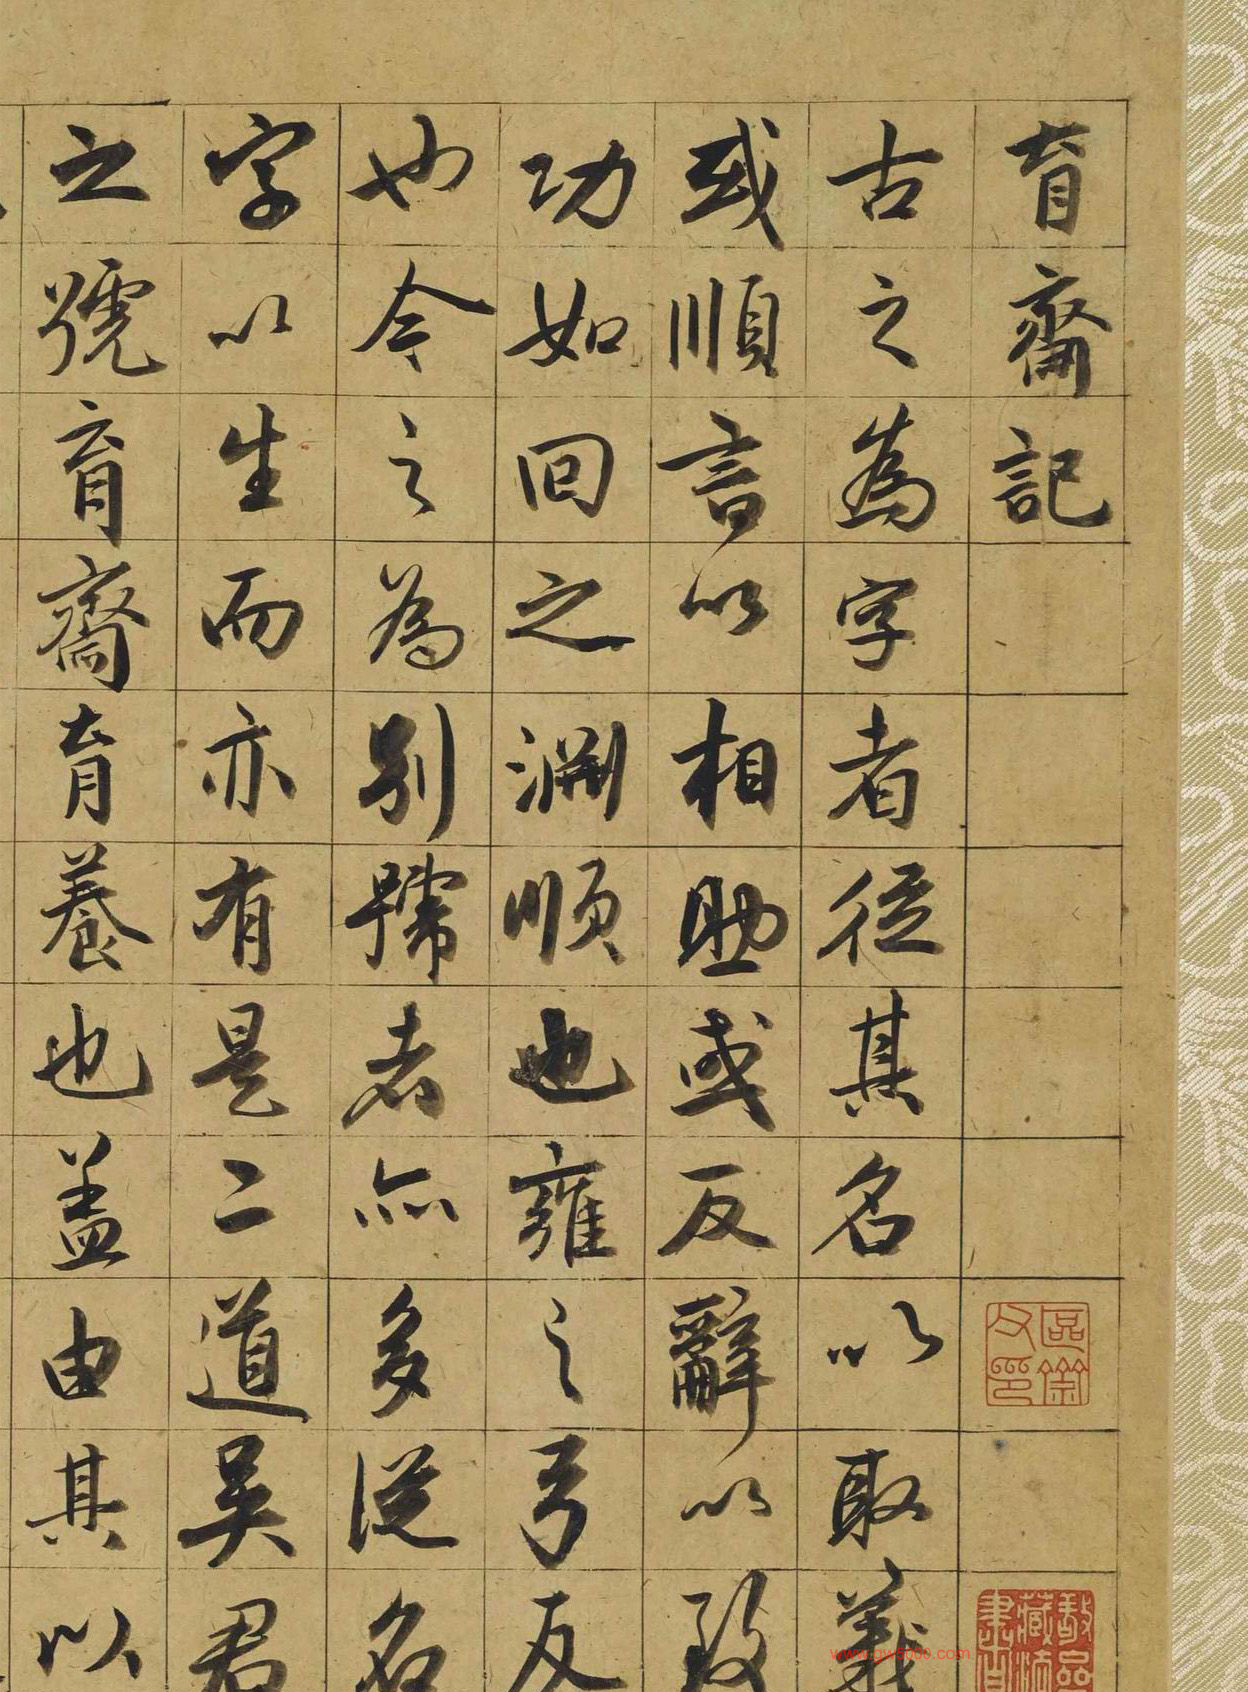 育齋記
古之為字者從其名以取義
或順言以相助或反辭以致
功如回之淵順也雍之弓反
也今之為別號者亦多從名
字以生而亦有是二道吳君
之號育齋育養也蓋由其以
www.gw5000.com